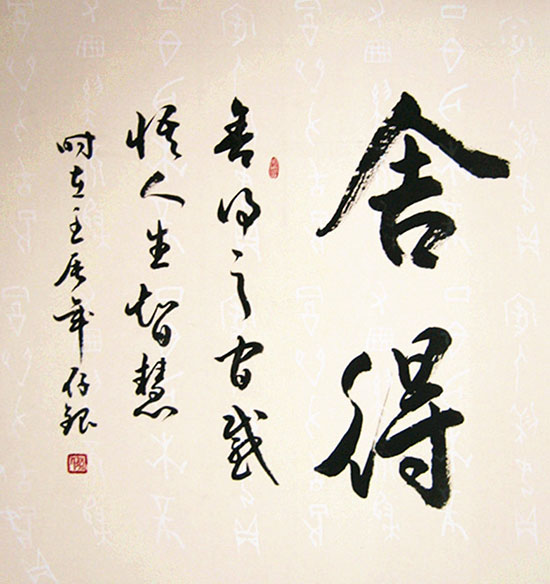 舍得
舍得之间感
悟人生智慧
时在壬辰年仔银